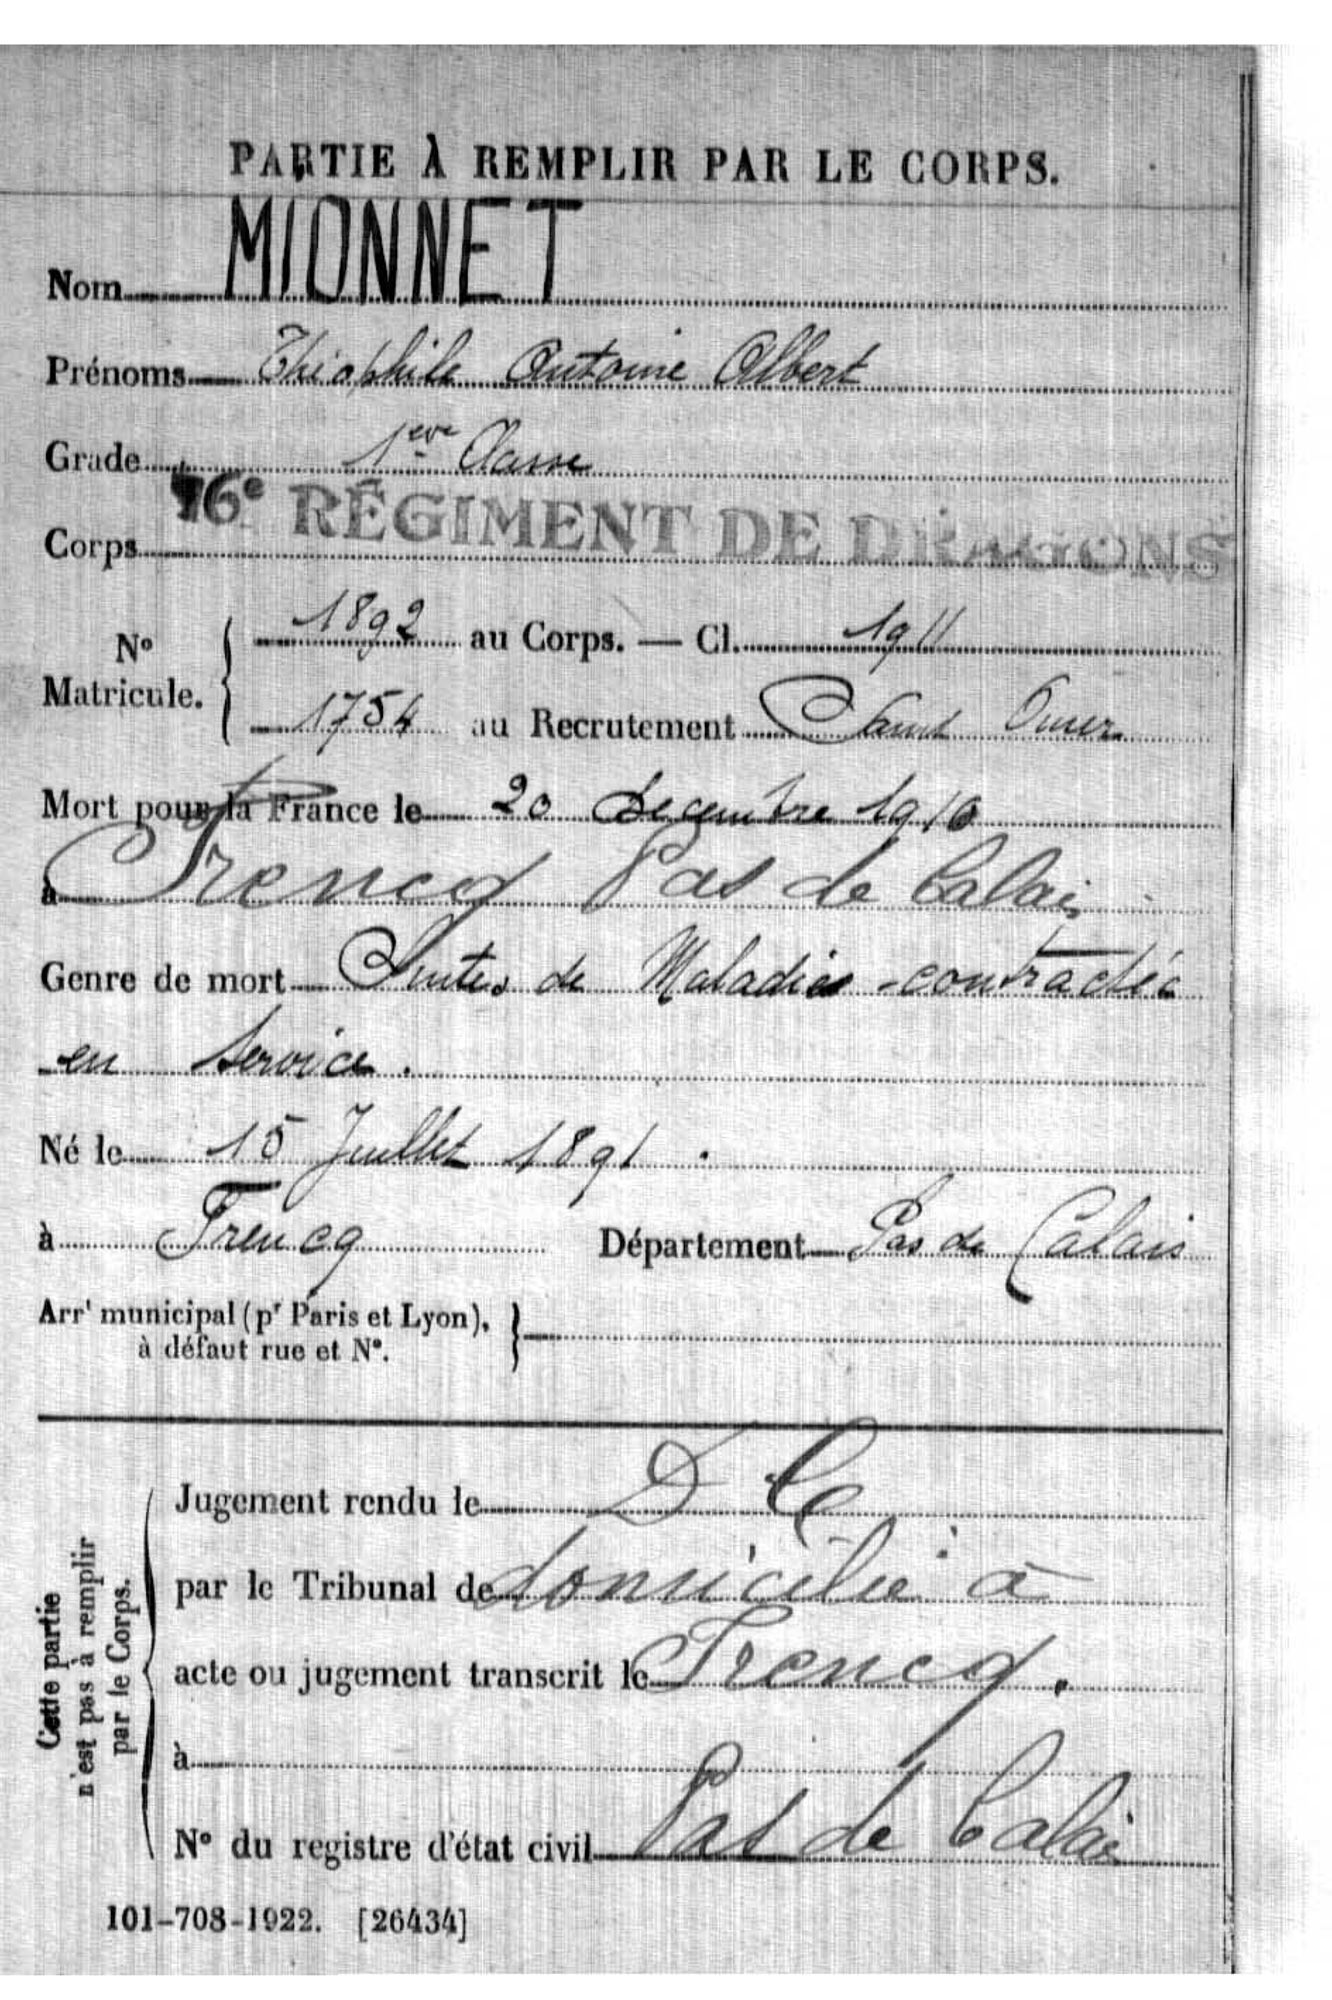 PARTIE À REMPLIR PAR LE CORPS.
Nom MIONNET
Prénoms Théophile Antoine Albert
Grade 1ere Classe
Corps 16e RÉGIMENT DE DRAGONS
No Matricule. { 1892 au Corps. — Cl. 1911
1754 au Recrutement Saint Omer
Mort pour la France le 20 Decembre 1916
à Frencq Pas de Calais
Genre de mort Suites de Maladies contractée
en Service.
Né le 15 Juillet 1891.
à Frencq Département Pas de Calais
Arrt municipal (pr Paris et Lyon),
à défaut rue et No. }
Cette partie
n'est pas à remplir
par le Corps.
Jugement rendu le D C
par le Tribunal de domicilié à
acte ou jugement transcrit le Frencq.
à
No du registre d'état civil Pas de Calais
101-708-1922. [26434]